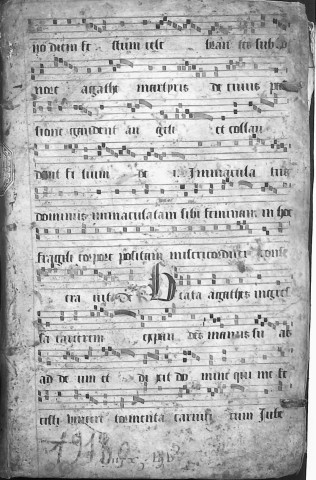 no diem fe stum cele bran tes sub ho
nore agathe martyris de cuius pas
sione gaudent an geli et collau
dant fi lium de i. Immacula tus
dominus immaculatam sibi feminam in hoc
fragili corpore positam misericorditer conse
cra uit. de Beata agathes ingres
sa carcerem expan dit manus su as
ad de um et di xit do mine qui me fe
cisti vincere tormenta carnifi cum Iube
1918